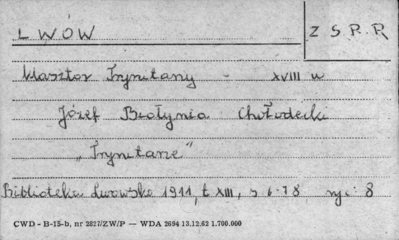 LWÓW
Z S R R
Klasztor Trynitarny - XVIII w
Józef Białynia Chołodecki
„Trynitarze"
Biblioteka Lwowska 1911, t. XIII, s 6-78 ryc. 8
CWD - B-15-b, nr 2827/ZW/P — WDA 2694 13.12.62 1.700.000